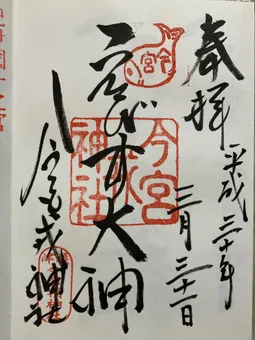 奉拝
平成三十年
三月三十一日
今宮
今宮戎神社
ゑびす大神
今宮戎神社